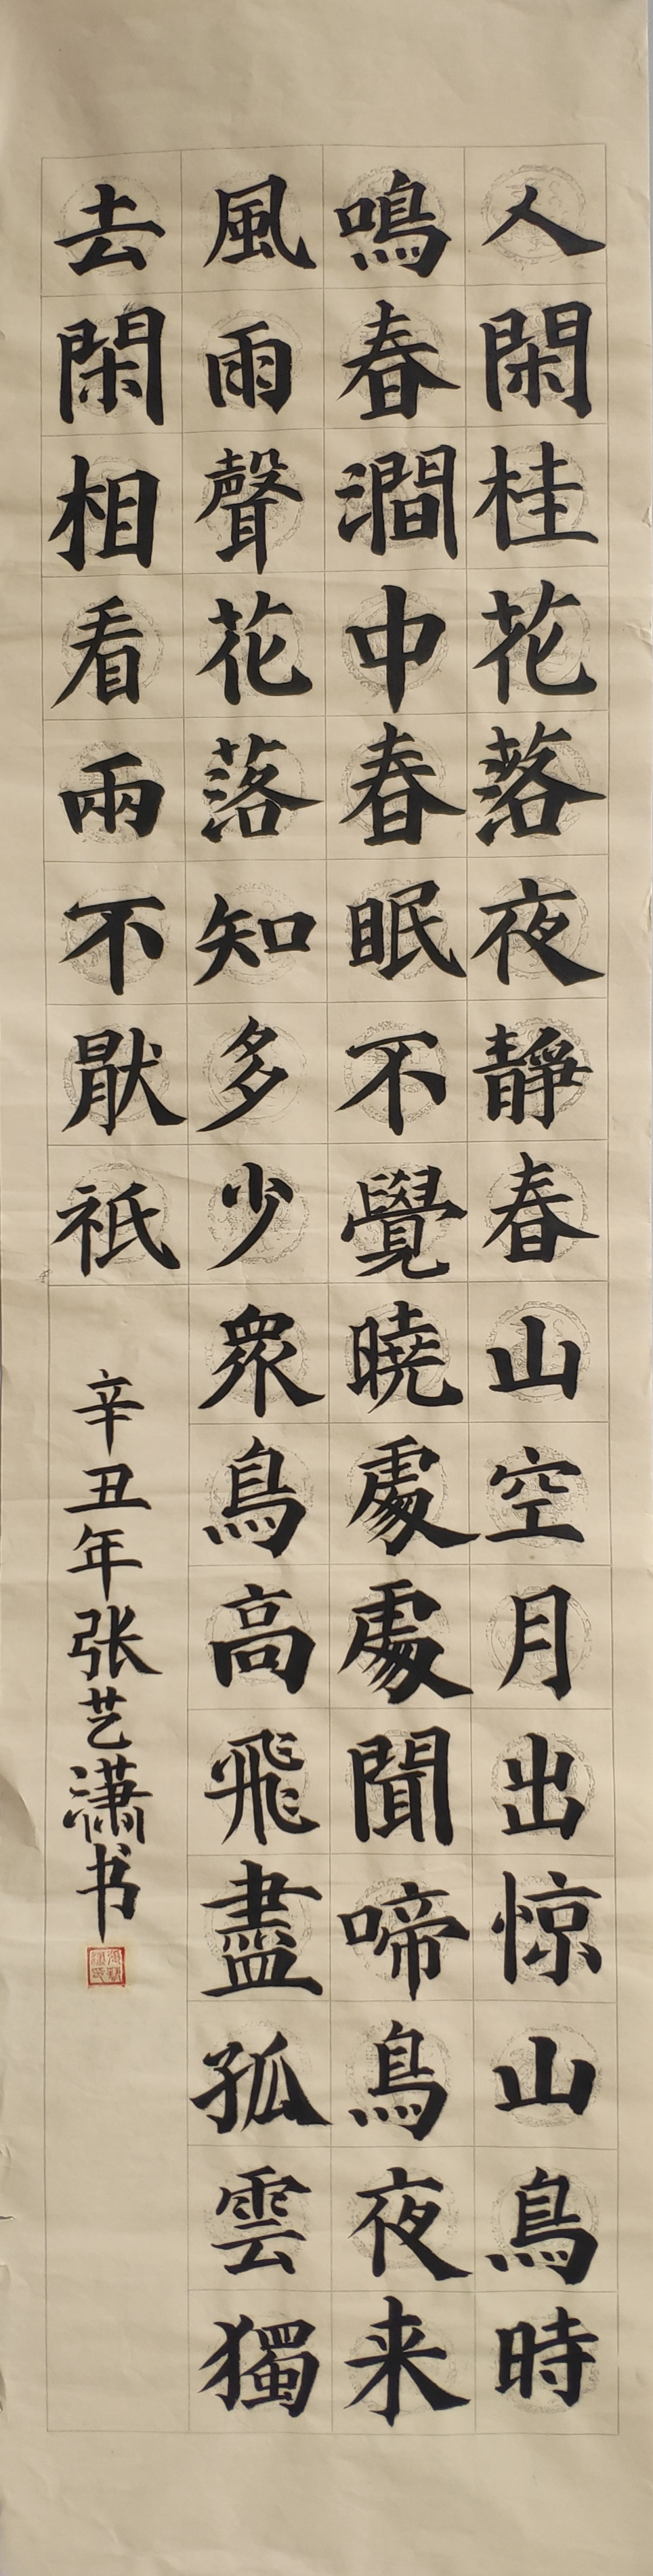 人閑桂花落夜靜春山空月出惊山鳥時
鳴春澗中春眠不覺曉處處聞啼鳥夜来
風雨聲花落知多少衆鳥高飛盡孤雲獨
去閑相看兩不猒祇
辛丑年张艺潇书